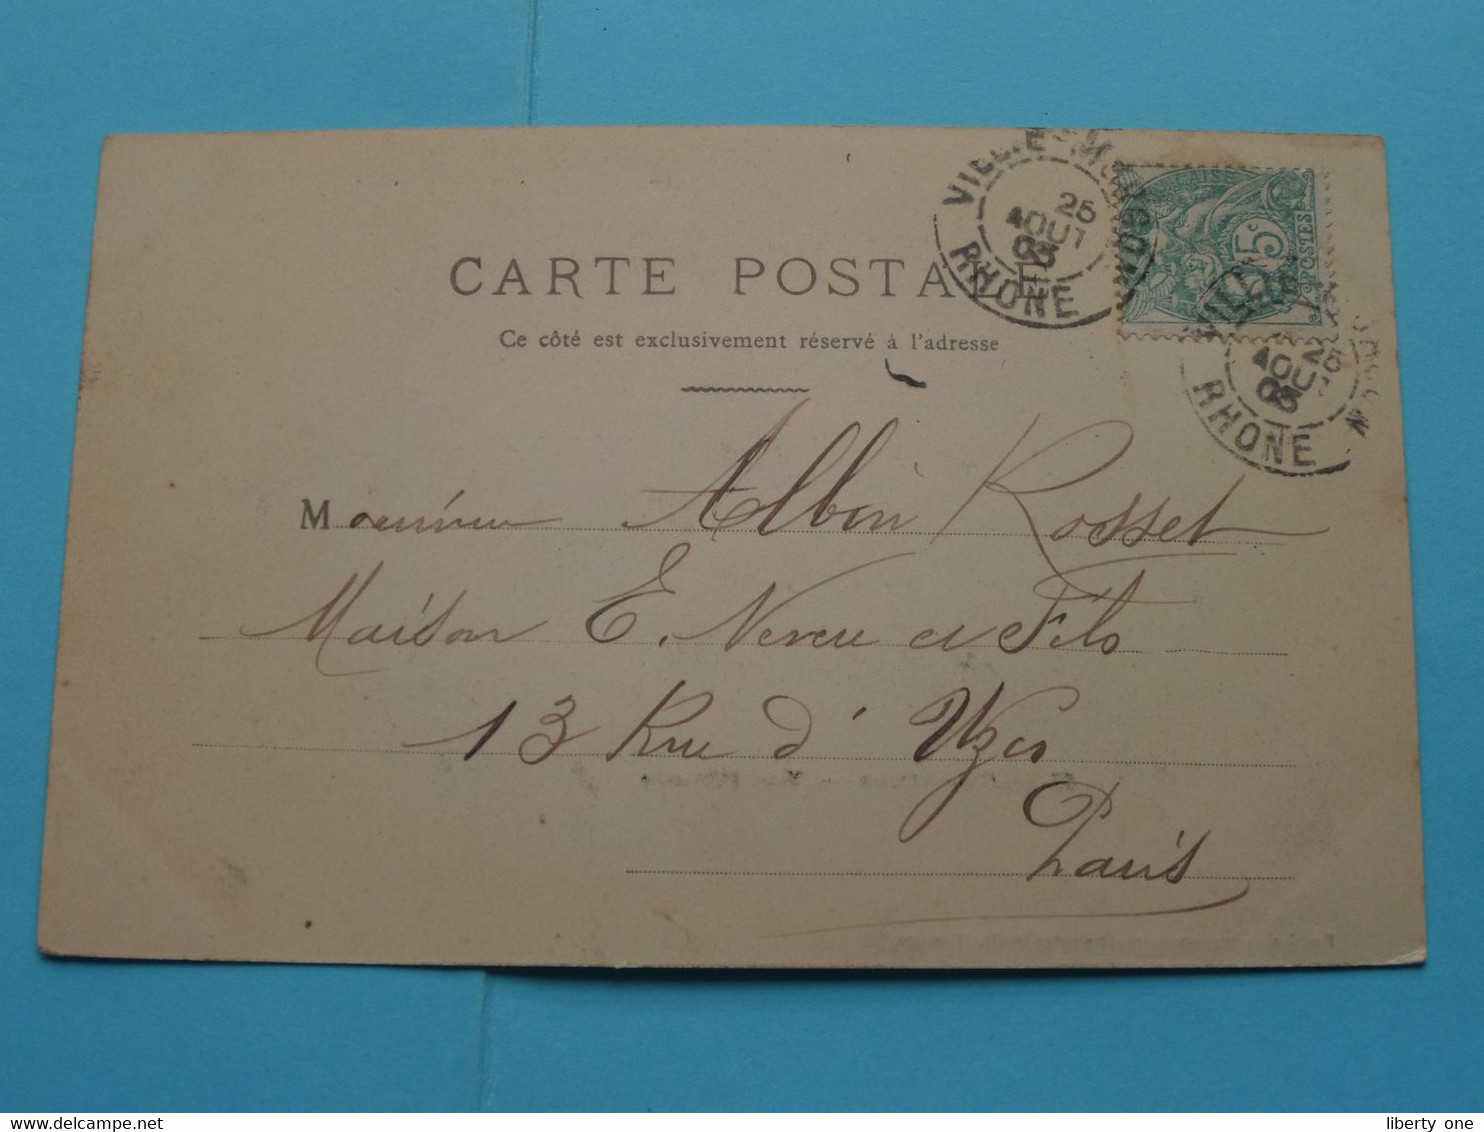 CARTE POSTALE
Ce côté est exclusivement réservé à l'adresse
VILLIE-MORGON
25
AOUT
05
RHONE
5c
POSTES
25
AOUT
05
RHONE
Monsieur Albin Rosset
Maison E. Neveu et Fils
13 Rue d'Uzès
Paris
liberty one